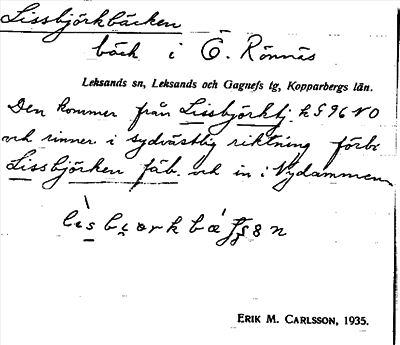 Lissbjörkbäcken
bäck i Ö. Rönnäs
Leksands sn, Leksands och Gagnefs tg, Kopparbergs län.
Den kommer från Lissbjörktj. k 596 NO
och rinner i sydvästlig riktning förbi
Lissbjörken fäb. och in i Nydammen
ERIK M. CARLSSON, 1935.